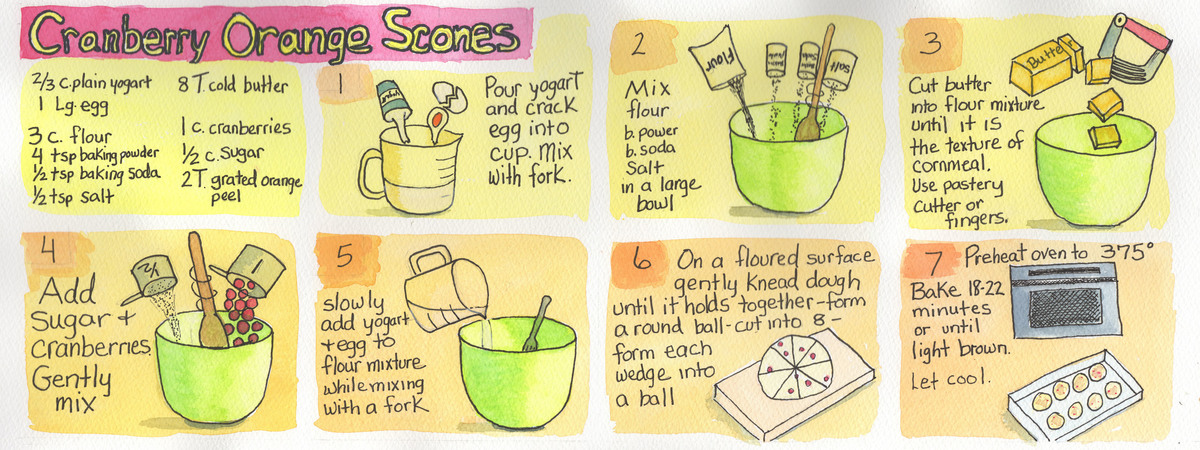 Cranberry Orange Scones
2/3 c. plain yogurt
1 Lg. egg
3 c. flour
4 tsp baking powder
1/2 tsp baking soda
1/2 tsp salt
8 T. cold butter
1 c. cranberries
1/2 c. sugar
2 T. grated orange
peel
1
Pour yogurt
and crack
egg into
cup. Mix
with fork.
2
Mix
flour
b. power
b. soda
Salt
in a large
bowl
flour
salt
3
Butter
Cut butter
into flour mixture
until it is
the texture of
cornmeal.
Use pastery
cutter or
fingers.
4
Add
Sugar +
Cranberries.
Gently
mix
1
5
slowly
add yogurt
+ egg to
flour mixture
while mixing
with a fork
6
On a floured surface
gently knead dough
until it holds together - form
a round ball - cut into 8 -
form each
wedge into
a ball
7
Preheat oven to 375°
Bake 18-22
minutes
or until
light brown.
Let cool.